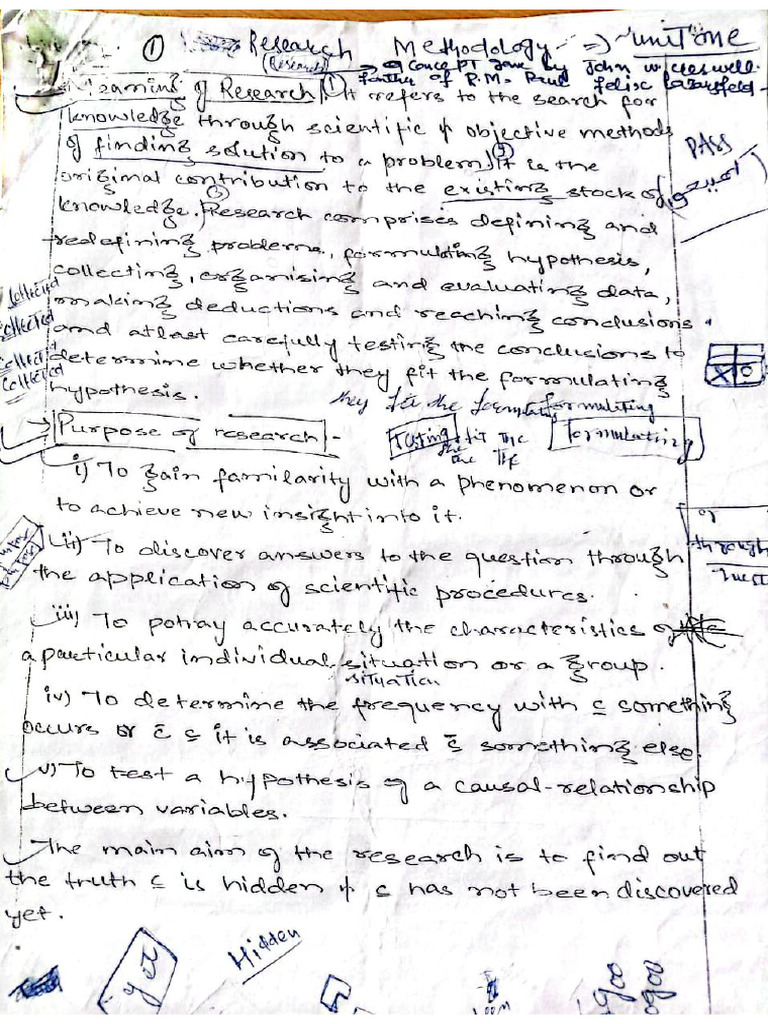 ① Research Methodology => ~ Unit One
(Research) → Concept gave by John W. Creswell.
Father of R.M = Paul Felix Lazarsfeld -
Meaning of Research | ① It refers to the search for
knowledge through scientific & objective methods
of finding solution to a problem. ② It is the
original contribution to the existing stock of
knowledge. ③ Research comprises defining and
redefining problems, formulating hypothesis,
collecting, organising and evaluating data,
making deductions and reaching conclusions.
and atlast carefully testing the conclusions to
determine whether they fit the formulating
hypothesis.
PASS
collected
collected
collected
collected
they fit the formulating formulating
→ Purpose of research -
Testing fit the formulating
the
the The
i) To gain familarity with a phenomenon or
to achieve new insight into it.
ii) To discover answers to the question through
the application of scientific procedures.
or
through
iii) To potray accurately the characteristics of
a particular individual situation or a group.
situation
iv) To determine the frequency with c̲ something
occurs or c̄ c̲ it is associated c̄ something else.
v) To test a hypothesis of a causal-relationship
between variables.
The main aim of the research is to find out
the truth c̲ is hidden & c̲ has not been discovered
yet.
Hidden
yet